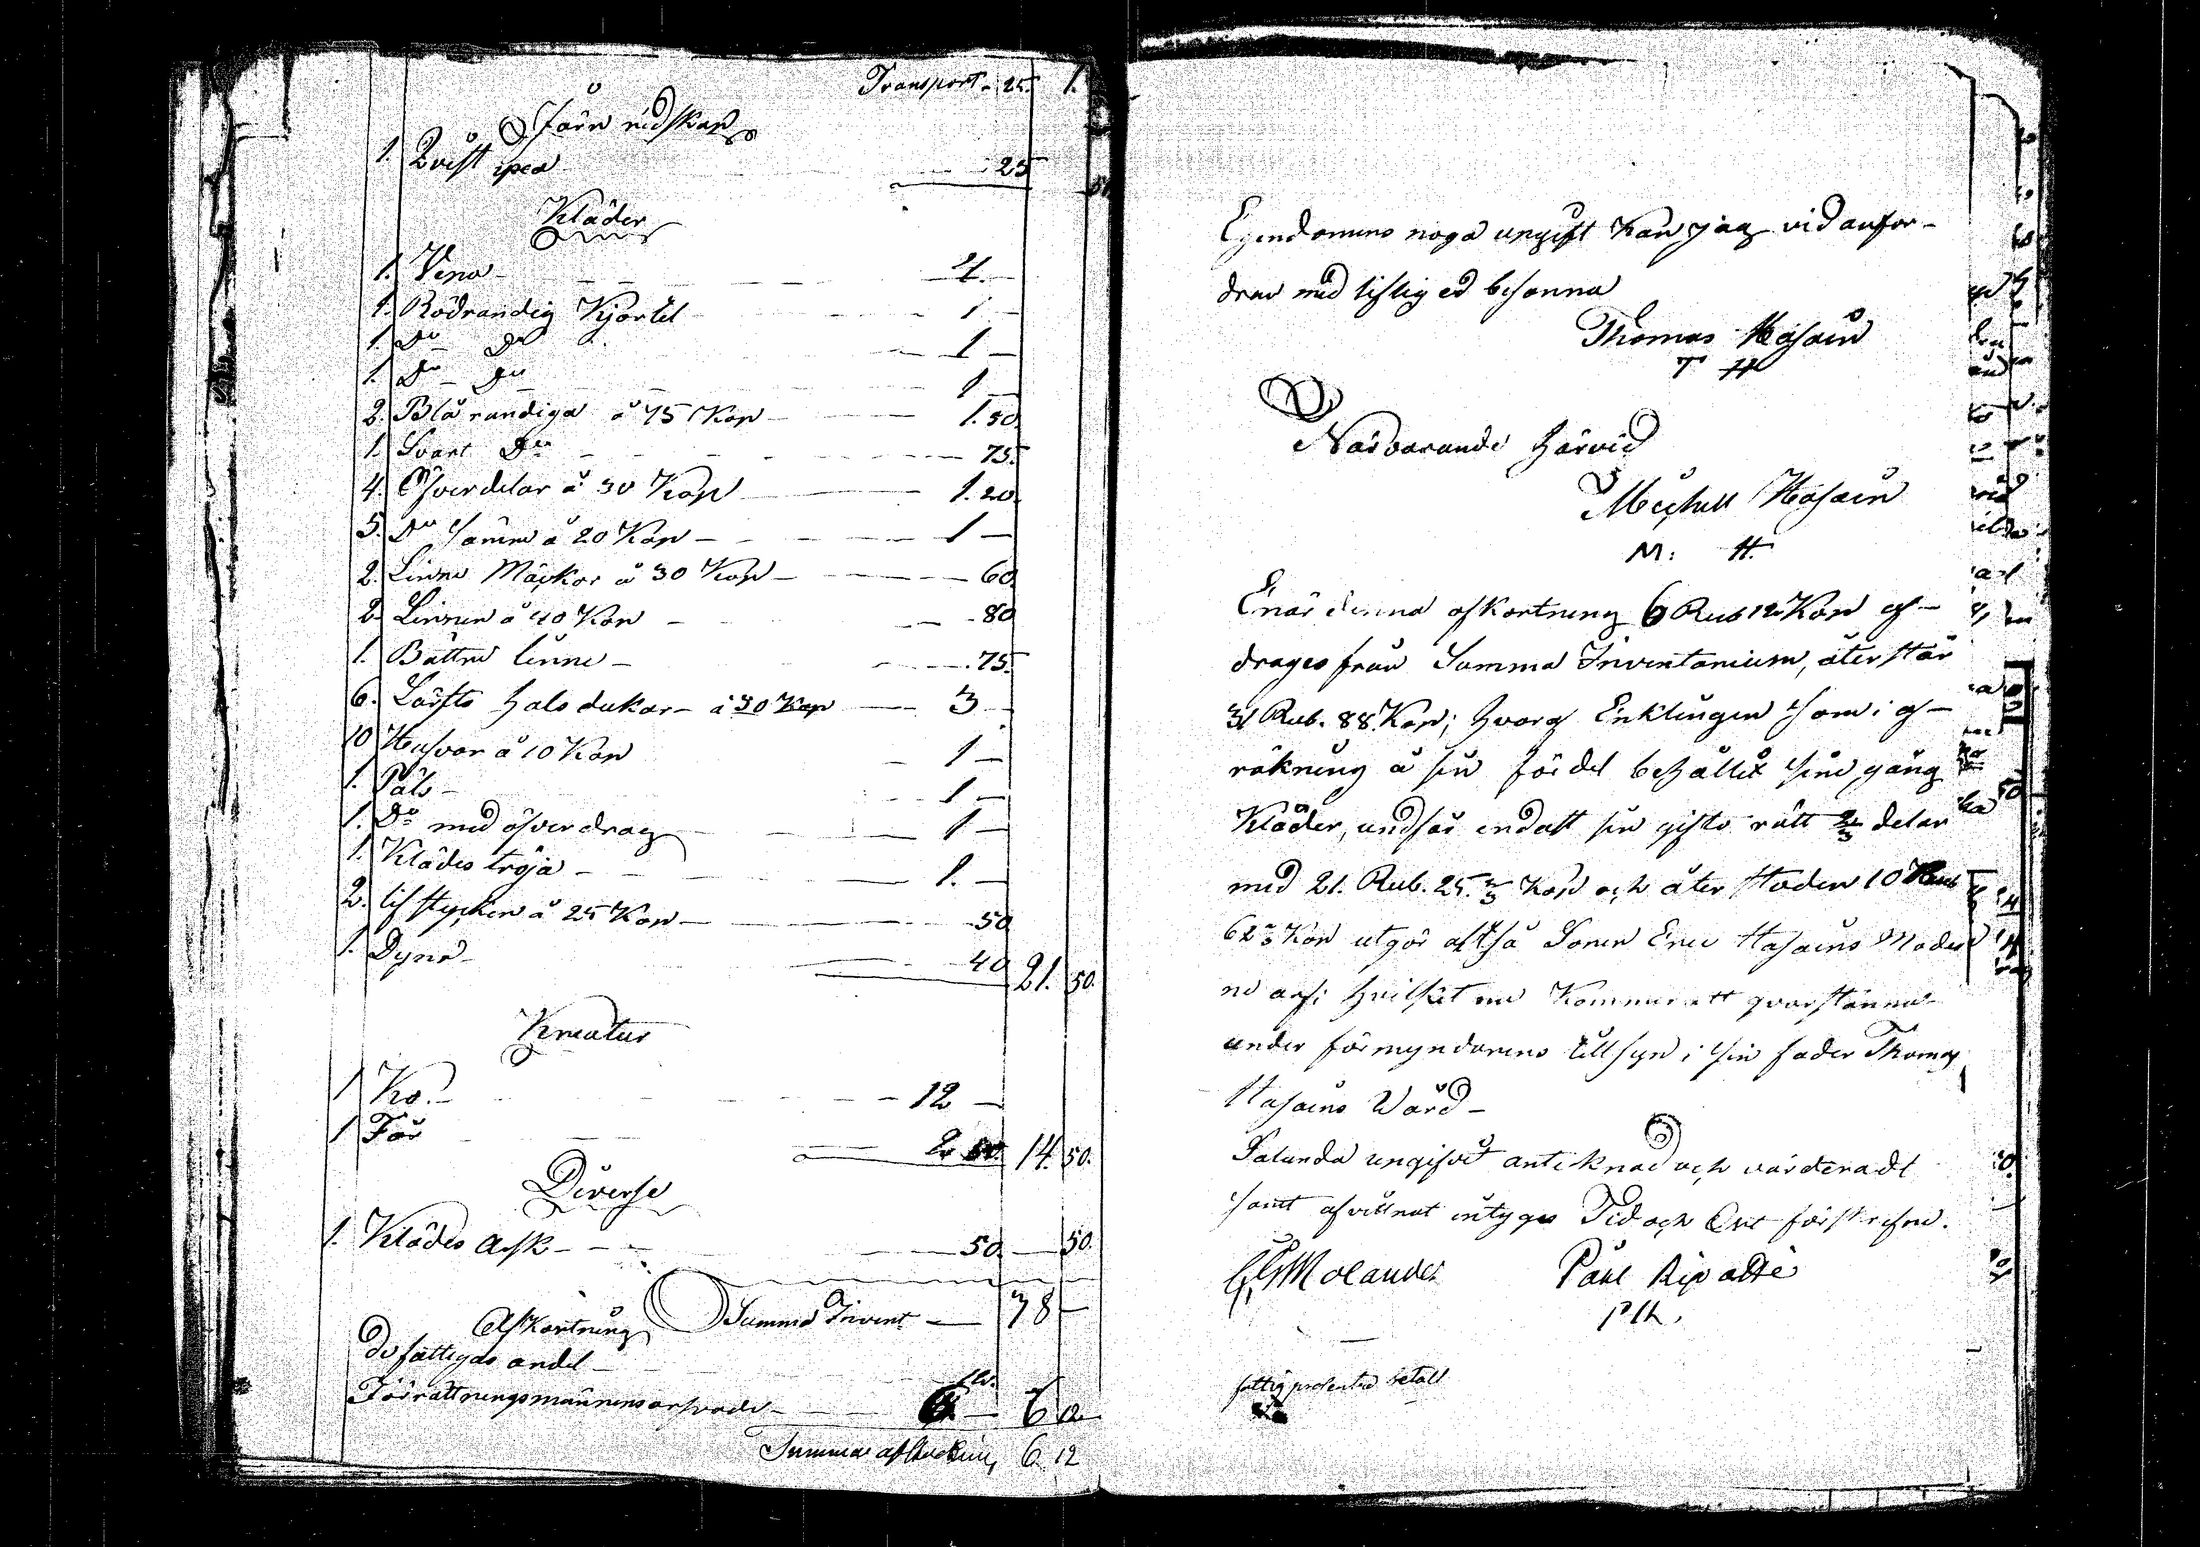 Transport - 25. 1.
Järn redskap
1. Qvist ipea 25
Kläder
1. Vena 4.
1. Rödrandig Kjortel 1
1. Do Do 1
1. Do Do 1
2. Blå randiga à 75 Kop 1. 50.
1. Svart Do 75.
4. Öfverdelar à 30 Kop 1. 20.
5. Do sämre à 20 Kop 1
2. Linne Mäckor à 30 Kop 60.
2. Linnen à 40 Kop 80
1. Bättre linne 75.
6. Lärfts halsdukar à 50 Kop 3
10 Hufvor à 10 Kop 1
1. Päls 1
1. Do med öfverdrag 1
1. Klädes tröja 1.
2. lifstycken à 25 Kop 50
1. Dyna 40 21. 50.
Kreatur
1 Ko. 12
1 Får 2 50. 14. 50.
Diverse
1. Klädes Ask 50. 50.
Summa Invent 38
Afkortning
De fattigas andel 12.
Förrättningsmännens arfvode 6 6 12
Summa afkortning 6 12
Egendomens noga uppgift kan jag vid anfor-
dran med liflig ed besanna
Thomas Hasain
T H
Närvarande härvid
Michell Hasain
M: H.
Enär denna afkortning 6 Rub 12 Kop af-
drages från Summa Inventarium, återstår
31 Rub. 88 Kop; hvaraf Enklingen som i af-
räkning å sin fördel behållit sine gång
Kläder, undfår endast sin gifto rätt 2/3 delar
med 21. Rub. 25. 1/3 Kop och åter stoden 10 Rub
62 2/3 Kop utgör altså Sonen Eric Hasains Moder
ne arf; hvilket nu Kommer att qvarstanna
under förmyndarens tillsyn i sin fader Thomas
Hasains Wård
Salunda uppgifvit antecknad och värderadt
samt afvittnat intygas Tid och Ort förskrifne.
Molander Påhl
fattigprocenten betalt